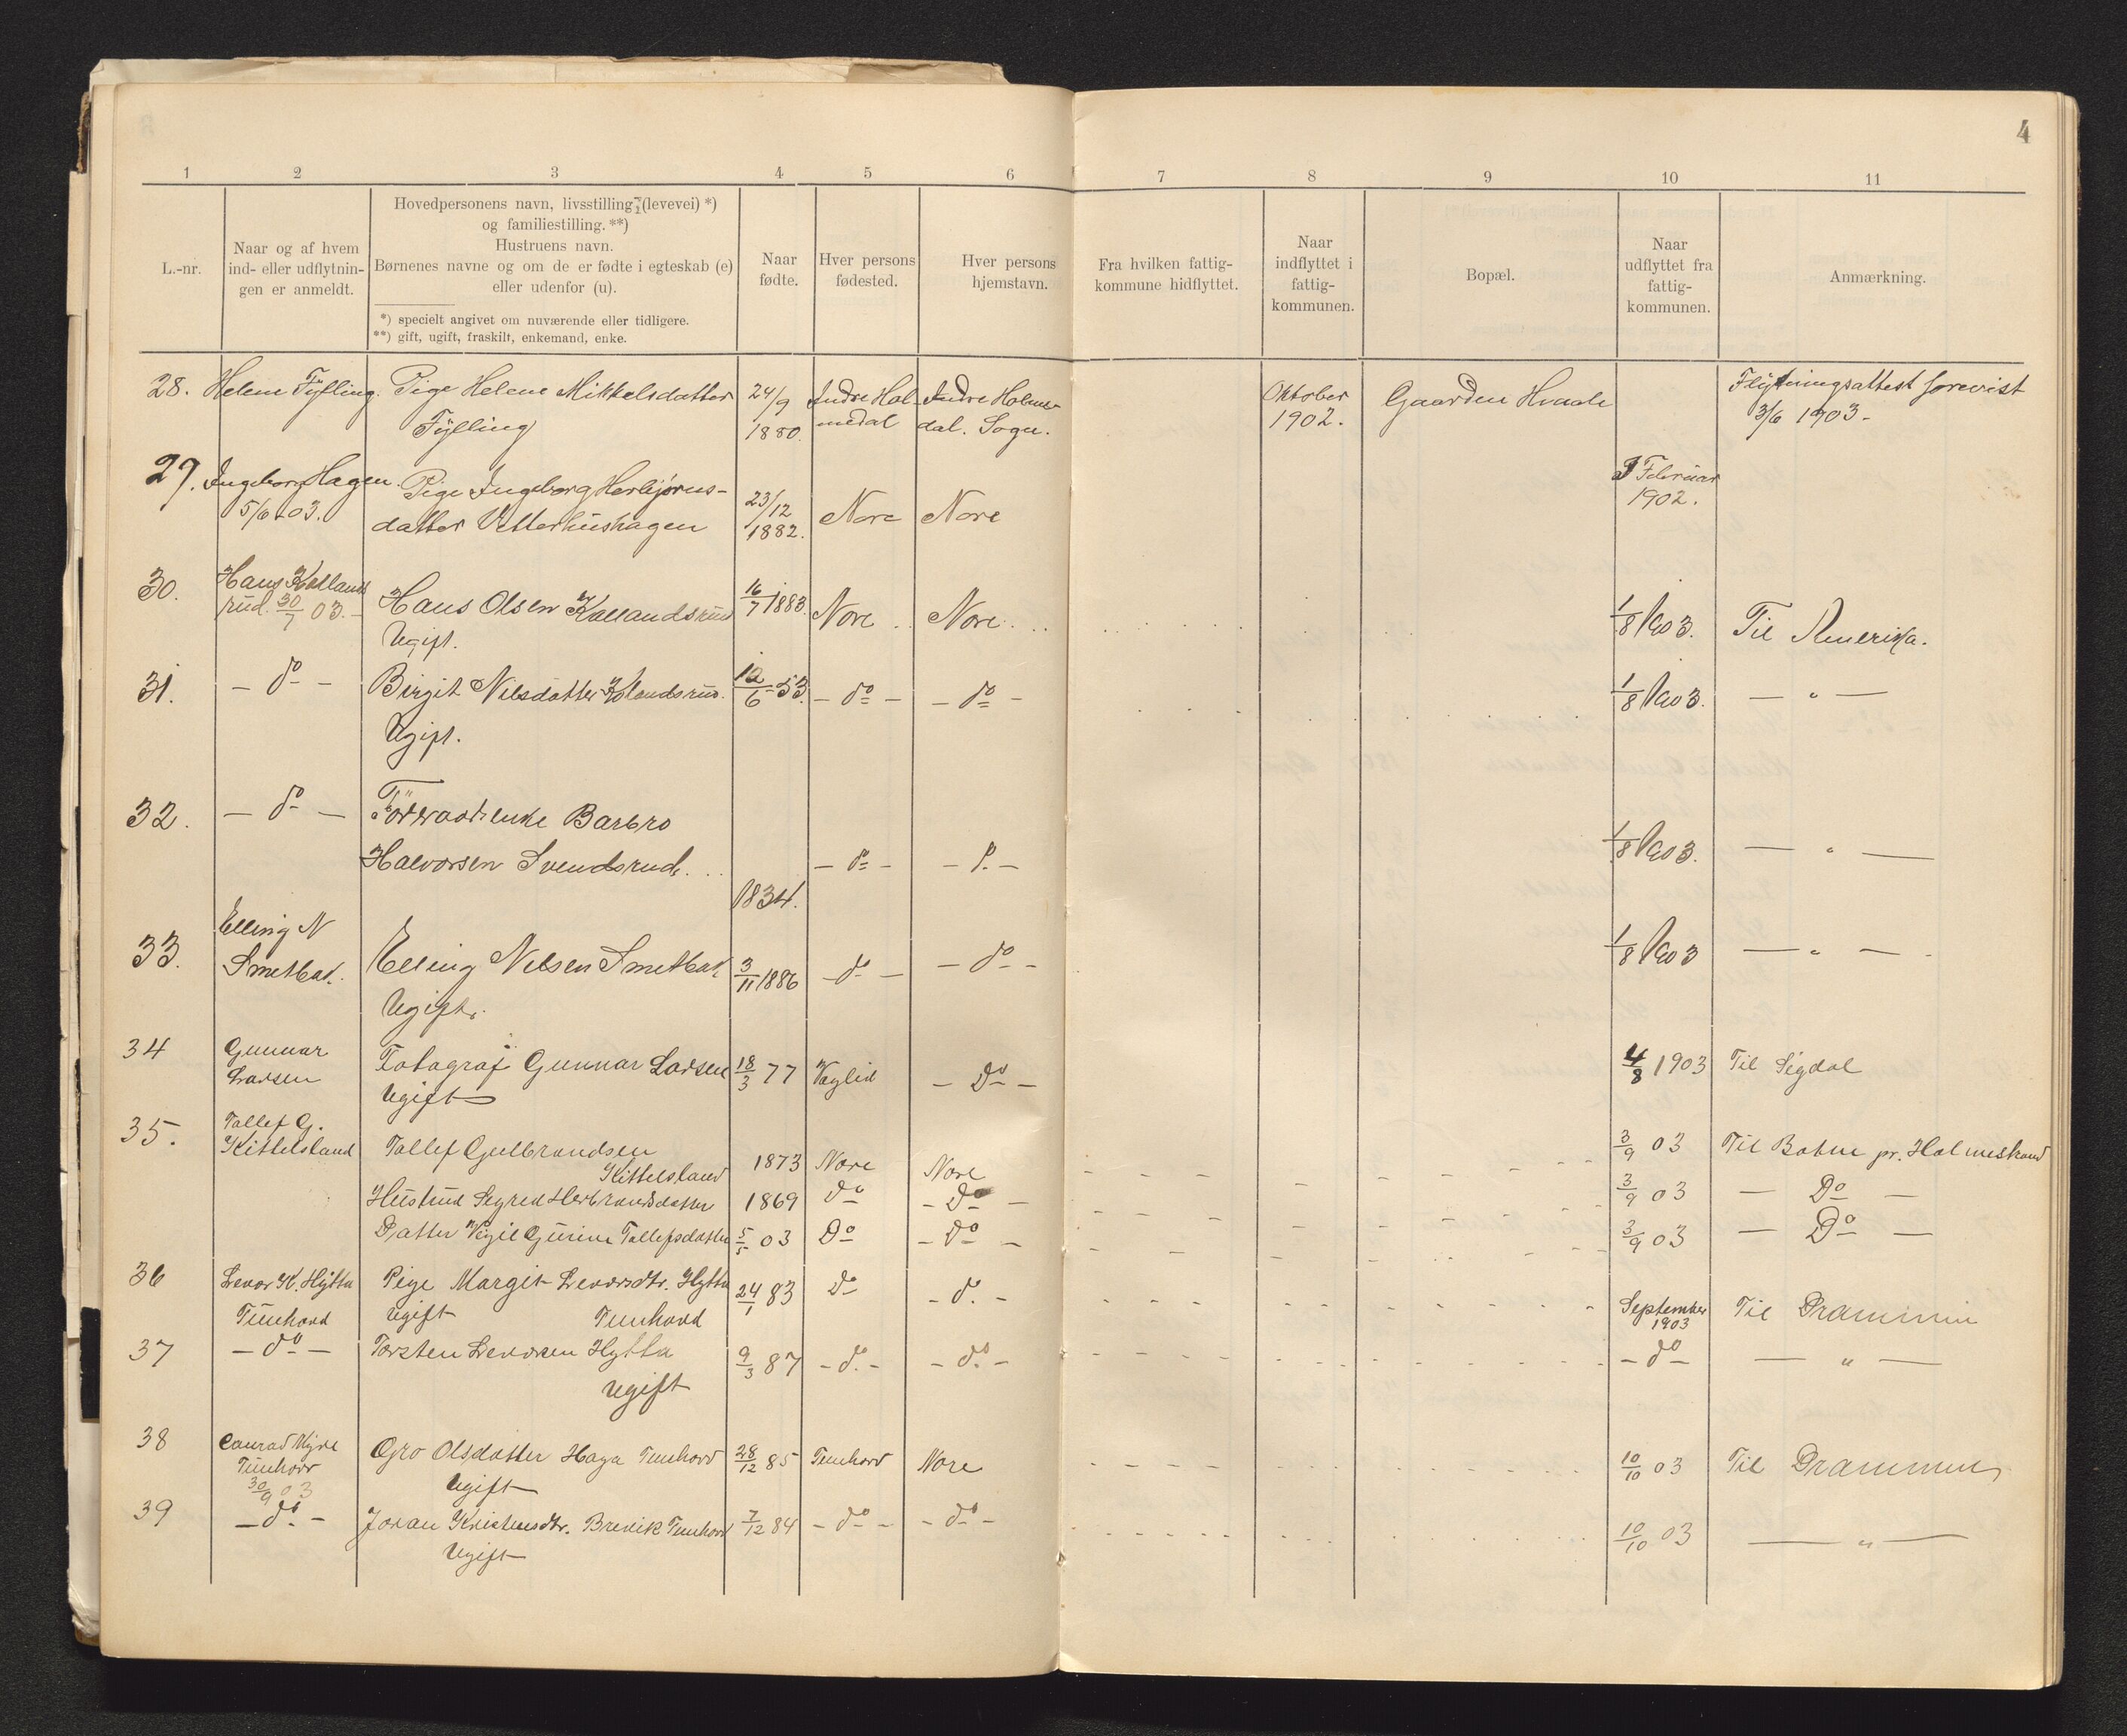 4
1 2 3 4 5 6 7 8 9 10 11
L.-nr.
Naar og af hvem
ind- eller udflytnin-
gen er anmeldt.
Hovedpersonens navn, livsstilling (levevei) *)
og familiestilling. **)
Hustruens navn.
Børnenes navne og om de er fødte i egteskab (e)
eller udenfor (u).
*) specielt angivet om nuværende eller tidligere.
**) gift, ugift, fraskilt, enkemand, enke.
Naar
fødte.
Hver persons
fødested.
Hver persons
hjemstavn.
Fra hvilken fattig-
kommune hidflyttet.
Naar
indflyttet i
fattig-
kommunen.
Bopæl.
Naar
udflyttet fra
fattig-
kommunen.
Anmærkning.
28. Helene Fylling. Pige Helene Mikkelsdatter 24/9 Indre Hol- Indre Holme- Oktober Gaarden Hvaale Flytningsattest forevist
Fylling 1880. medal dal. Sogn. 1902. 3/6 1903-
29. Ingeborg Hagen. Pige Ingeborg Herbjørns- 23/12 Nore Nore Februar
5/6 03. datter Vetterhushagen 1882. 1902.
30. Hans Kolland Hans Olsen Kollandsrud 16/7 1883. Nore Nore 1/8 1903. Til Amerika.
rud. 30/7 03. Ugift.
31. - do - Birgit Nilsdatter Kolandsrud. 12/6 53. - do - - do - 1/8 1903. - " -
Ugift.
32. - do - Föderaadsenke Barbro
Halvorsen Svendsrud. 1834. - do - - do - 1/8 1903. - " -
33. Elling N Elling Nilsen Smetbak 3/11 1886 - do - - do - 1/8 1903 - " -
Smetbak. Ugift.
34 Gunnar Fotograf Gunnar Larsen 18/3 77 Veglid - Do - 4/8 1903 Til Sigdal
Larsen Ugift
35. Tollef G. Tollef Gulbrandsen
Kittelsland Kittelsland 1873 Nore Nore 3/9 03 Til Botne pr. Holmestrand
Hustrud Sigred Herbrandsdatter 1869 Do - Do - 3/9 03 - Do -
Datter Vigil Gurine Tollefsdatter 5/5 03 Do - Do - 3/9 03 - Do -
36 Levor K. Hytta Pige Margit Levorsdtr. Hytta 24/1 83 Do - do - September 1903 Til Drammen
Tunhovd ugift Tunhovd
37 - do - Torsten Levorsen Hytta 9/3 87 - do - - do - - do - - " -
ugift
38 Conrad Myre Gro Olsdatter Haga Tunhovd 28/12 85 Tunhovd Nore 10/10 03 Til Drammen
Tunhovd
30/9 03 Ugift
39 - do - Joran Kristensdtr. Brevik Tunhovd 7/12 84 - do - - do - 10/10 03 - " -
Ugift